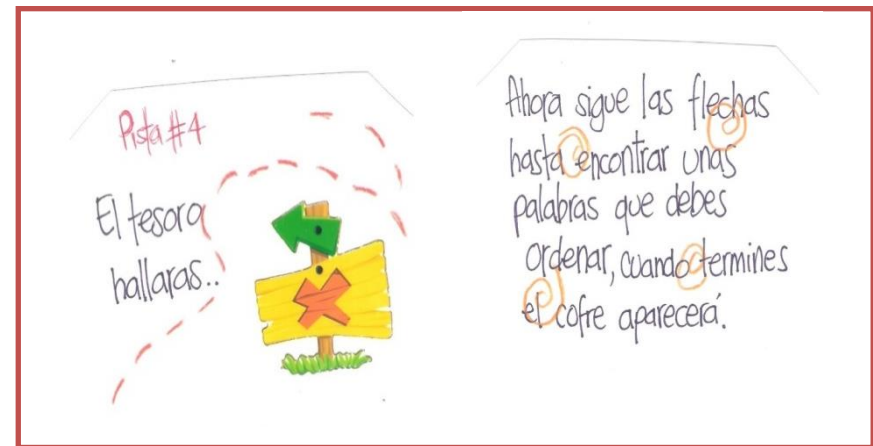 Pista #4
El tesoro
hallaras..
Ahora sigue las flechas
hasta encontrar unas
palabras que debes
ordenar, cuando termines
el cofre aparecerá.